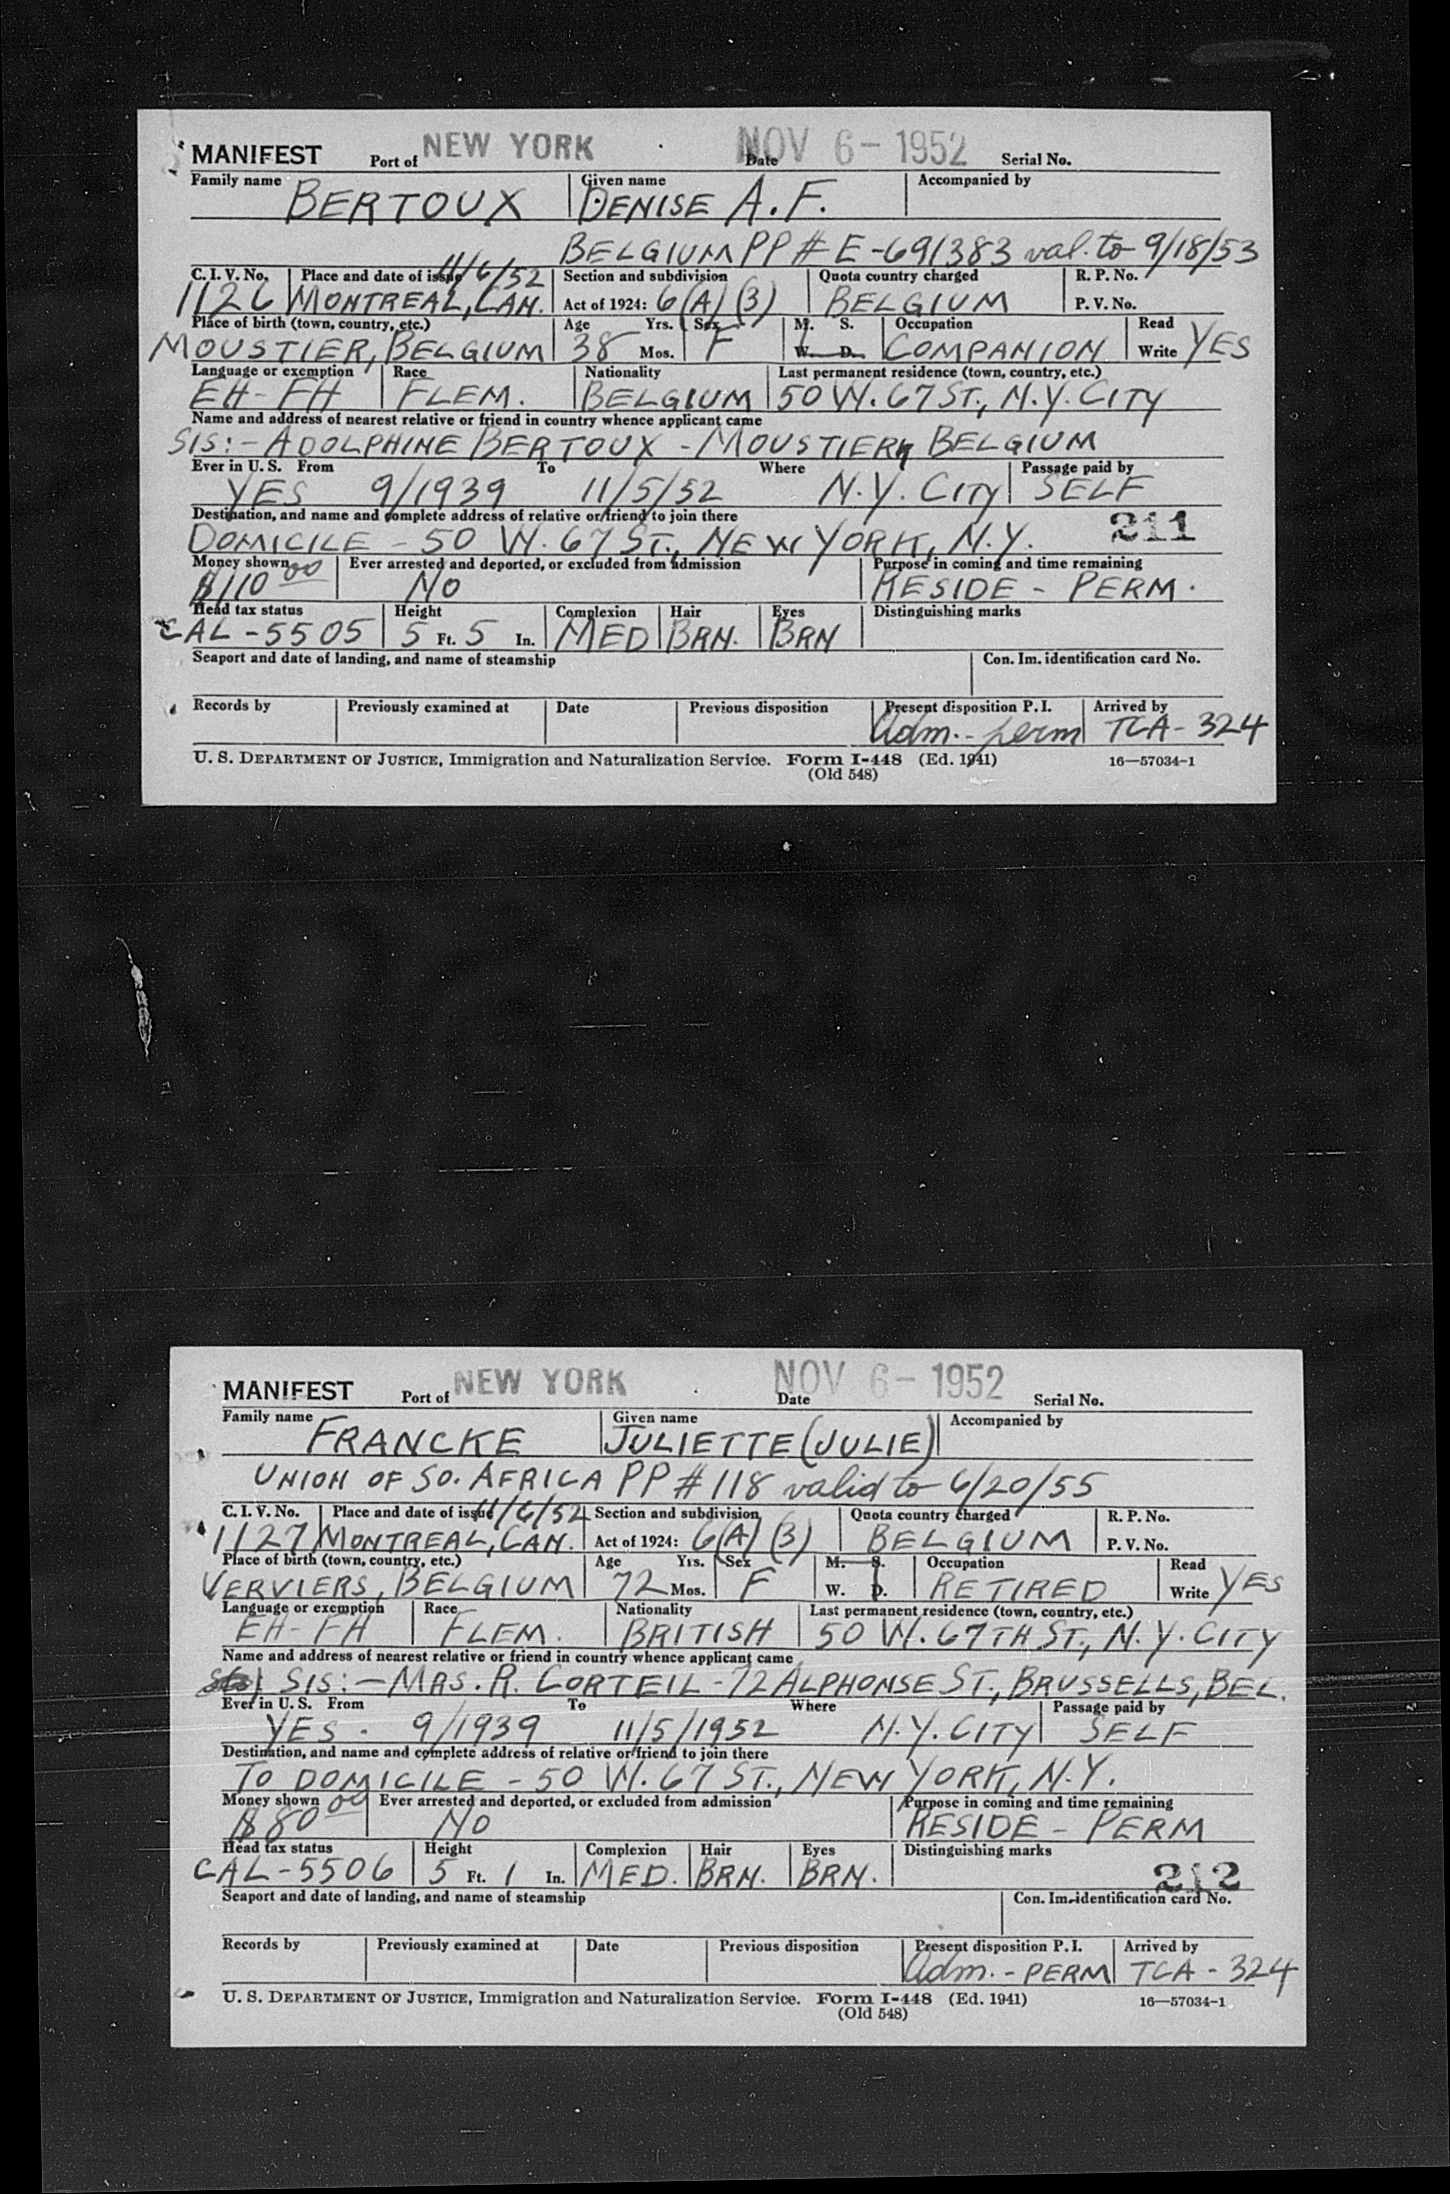 MANIFEST Port of NEW YORK Date NOV 6 - 1952 Serial No.
Family name BERTOUX Given name DENISE A. F. Accompanied by
BELGIUM PP # E-691383 val. to 9/18/53
C. I. V. No. Place and date of issue 11/6/52 Section and subdivision Quota country charged R. P. No.
1126 MONTREAL, CAN. Act of 1924: 6(A)(3) BELGIUM P. V. No.
Place of birth (town, country, etc.) Age Yrs. Sex M. S. Occupation Read
MOUSTIER, BELGIUM 38 Mos. F W. D. COMPANION Write YES
Language or exemption Race Nationality Last permanent residence (town, country, etc.)
EH-FH FLEM. BELGIUM 50 W. 67 ST., N.Y. CITY
Name and address of nearest relative or friend in country whence applicant came
SIS:- ADOLPHINE BERTOUX - MOUSTIER, BELGIUM
Ever in U. S. From To Where Passage paid by
YES 9/1939 11/5/52 N.Y. CITY SELF
Destination, and name and complete address of relative or friend to join there
DOMICILE - 50 W. 67 ST., NEW YORK, N.Y. 211
Money shown Ever arrested and deported, or excluded from admission Purpose in coming and time remaining
$110 00 NO RESIDE - PERM.
Head tax status Height Complexion Hair Eyes Distinguishing marks
CAL-5505 5 Ft. 5 In. MED BRN. BRN
Seaport and date of landing, and name of steamship Con. Im. identification card No.
Records by Previously examined at Date Previous disposition Present disposition P. I. Arrived by
Adm. - perm TCA - 324
U. S. DEPARTMENT OF JUSTICE, Immigration and Naturalization Service. Form I-448 (Ed. 1941) 16—57034-1
(Old 548)
MANIFEST Port of NEW YORK Date NOV 6 - 1952 Serial No.
Family name FRANCKE Given name JULIETTE (JULIE) Accompanied by
UNION OF SO. AFRICA PP # 118 valid to 6/20/55
C. I. V. No. Place and date of issue 11/6/52 Section and subdivision Quota country charged R. P. No.
1127 MONTREAL, CAN. Act of 1924: 6(A)(3) BELGIUM P. V. No.
Place of birth (town, country, etc.) Age Yrs. Sex M. S. Occupation Read
VERVIERS, BELGIUM 72 Mos. F W. D. RETIRED Write YES
Language or exemption Race Nationality Last permanent residence (town, country, etc.)
EH-FH FLEM. BRITISH 50 W. 67TH ST., N.Y. CITY
Name and address of nearest relative or friend in country whence applicant came
SIS:- MRS. R. CORTEIL - 72 ALPHONSE ST., BRUSSELLS, BEL.
Ever in U. S. From To Where Passage paid by
YES. 9/1939 11/5/1952 N.Y. CITY SELF
Destination, and name and complete address of relative or friend to join there
TO DOMICILE - 50 W. 67 ST., NEW YORK, N.Y.
Money shown Ever arrested and deported, or excluded from admission Purpose in coming and time remaining
$80 00 NO RESIDE - PERM
Head tax status Height Complexion Hair Eyes Distinguishing marks
CAL-5506 5 Ft. 1 In. MED. BRN. BRN. 212
Seaport and date of landing, and name of steamship Con. Im. identification card No.
Records by Previously examined at Date Previous disposition Present disposition P. I. Arrived by
Adm. - PERM TCA - 324
U. S. DEPARTMENT OF JUSTICE, Immigration and Naturalization Service. Form I-448 (Ed. 1941) 16—57034-1
(Old 548)